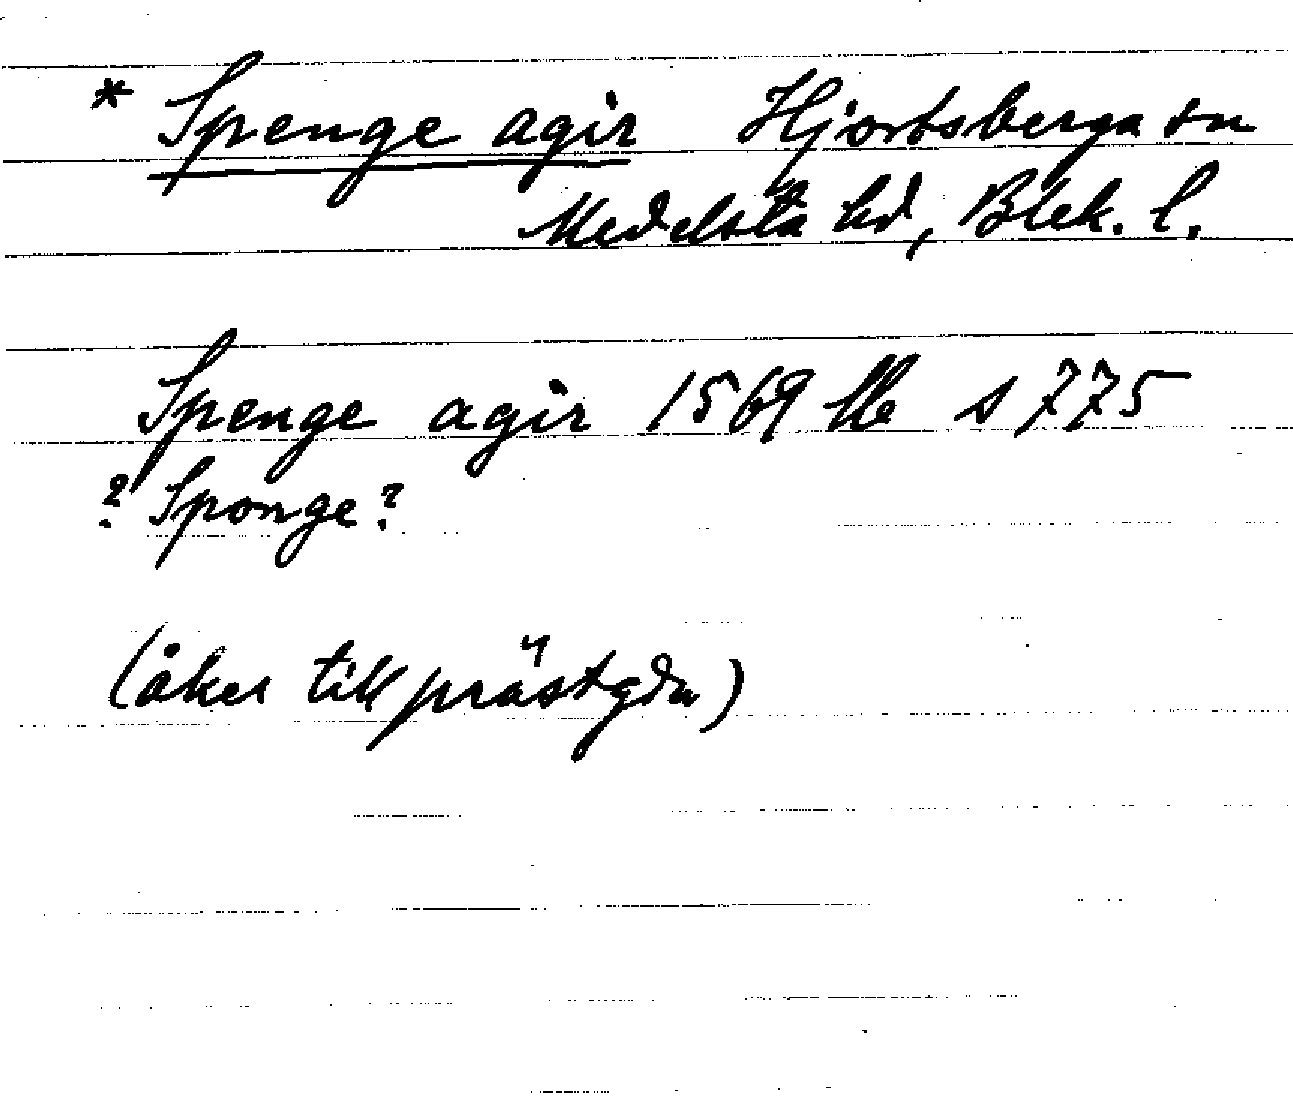 * Spenge agir Hjortsberga sn
Medelsta hd, Blek. l.
Spenge agir 1569 llb s 775
? Sponge?
(åker till prästgdn)